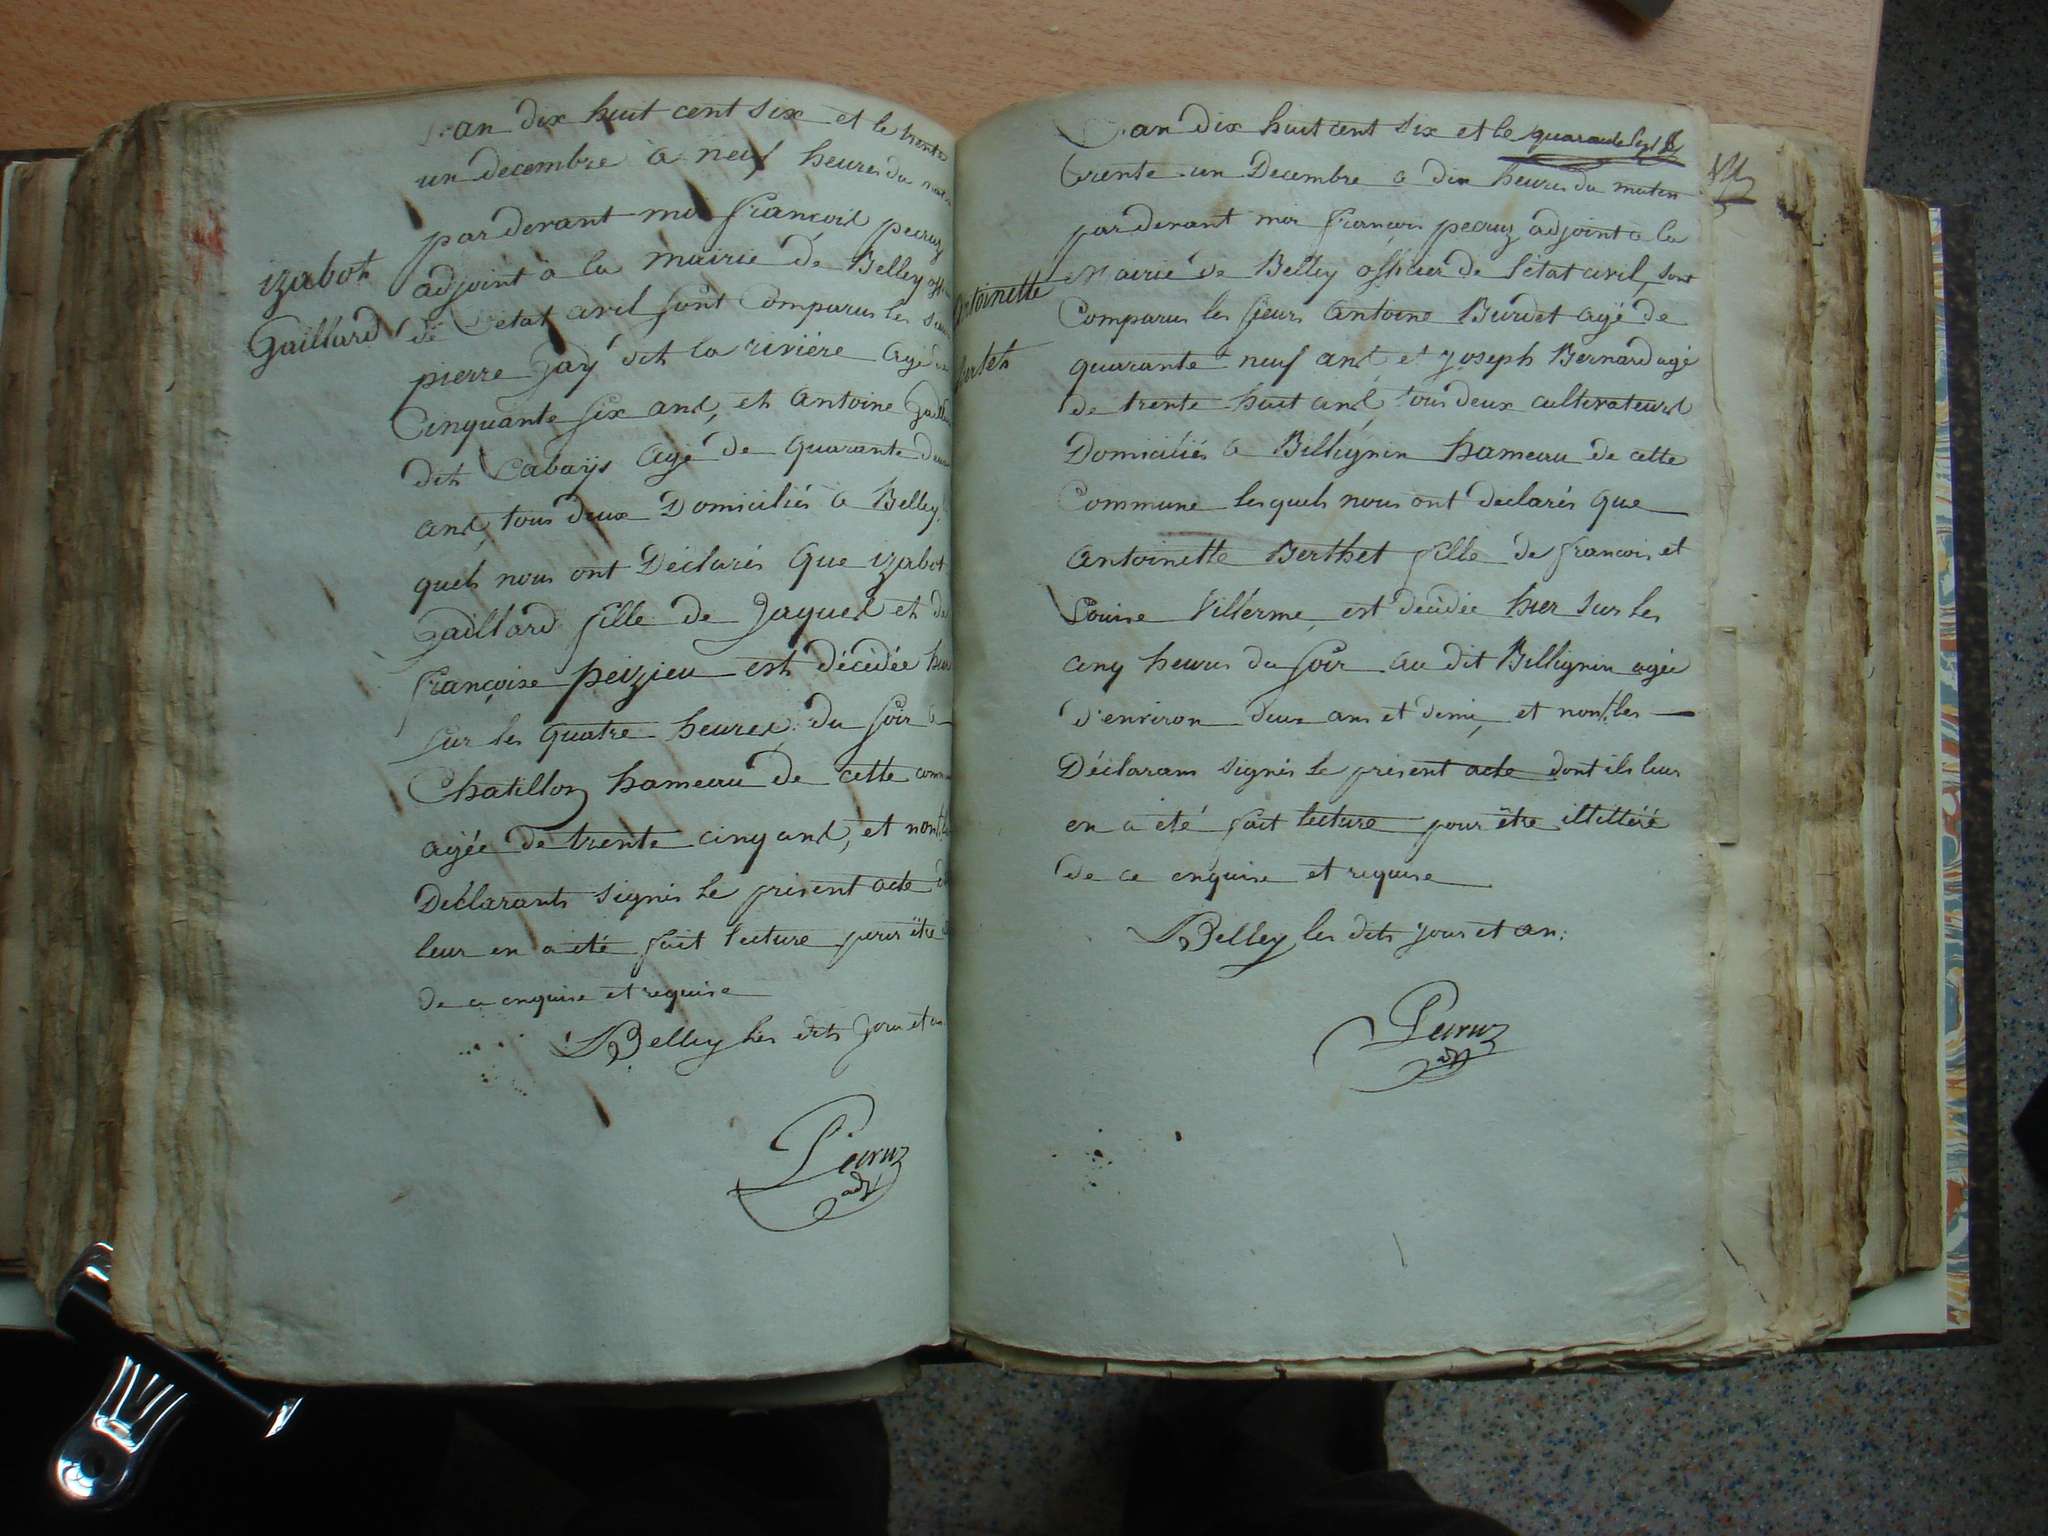 L'an dix huit cent six et le trente
un decembre a neuf heures du
par devant moi françois pecruz
adjoint à la mairie de Belley
de l'etat civil sont Comparus les
pierre jay dit la riviere agé de
Cinquante six ans, et antoine
dit Cabays agé de quarante
ans, tous deux Domiciliés a Belley
quels nous ont Déclarés que izabot
Gaillard fille de jaques et de
françoise peizieu est décédée hier
sur les quatre heures du soir a
Chatillon hameau de cette
agée de trente cinq ans, et nont
Déclarants signés le présent acte
leur en a eté fait lecture pour être
de ce enquise et requise
Belley les dits jour et an
Pecruz
adj
izabot
Gaillard
L'an dix huit cent six et le quarante sept
trente un Decembre a dix heures du matin
par devant moi françois pecruz adjoint a la
Mairie de Belley officier de l'état civil, sont
Comparus les sieurs antoine Burdet agé de
quarante neuf ans et joseph Bernard agé
de trente huit ans, tous deux cultivateurs
Domiciliés a Billignin hameau de cette
Commune lesquels nous ont declarés que
antoinette Berthet fille de francois et
Louise Villerme, est décédée hier sur les
cinq heures du soir au dit Billignin agée
d'environ deux ans et demi, et nont les
Déclarans signés le présent acte dont ils leur
en a été fait lecture pour être illitéré
de ce enquise et requise
Belley les dits jour et an.
Pecruz
adj
Antoinette